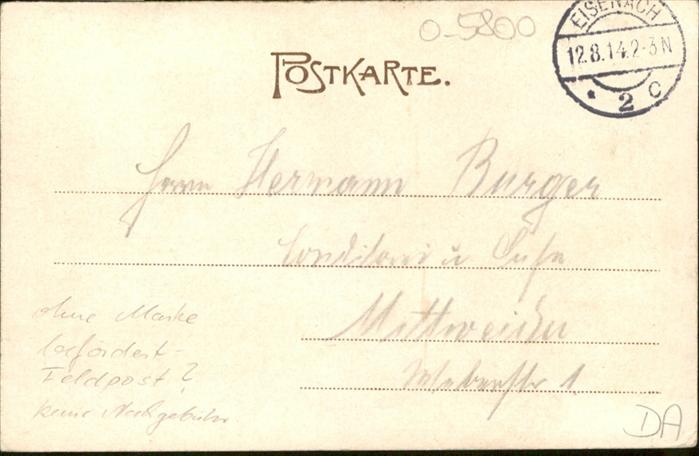 O-5800
EISENACH
12.8.14.2-3N
* 2 C
POSTKARTE.
Herrn Hermann Burger
Conditorei u Cafe
Mittweida
Weberstr 1
ohne Marke
befördert -
Feldpost?
keine Nachgebühr.
DA